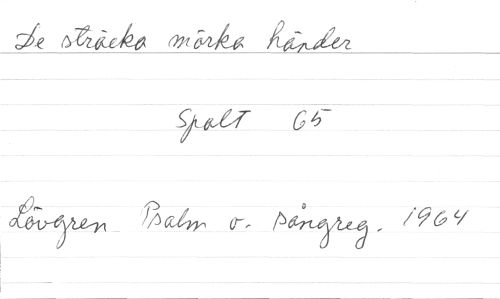 De sträcka mörka händer
Spalt 65
Lövgren Psalm o. sångreg. 1964